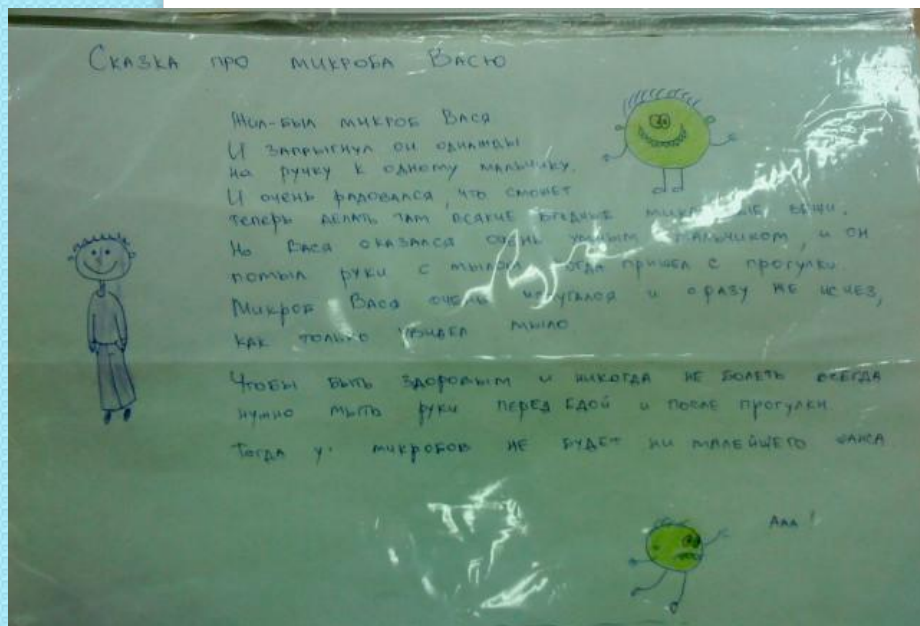 Сказка про микроба Васю
Жил-был микроб Вася
И запрыгнул он однажды
на ручку к одному мальчику.
И очень радовался, что сможет
теперь делать там всякие вредные вещи.
Но Вася оказался очень умным мальчиком, и он
помыл руки с мылом когда пришел с прогулки.
Микроб Вася очень испугался и сразу же исчез,
как только увидел мыло
Чтобы быть здоровым и никогда не болеть всегда
нужно мыть руки перед едой и после прогулки
Тогда у микробов не будет ни малейшего шанса
Ааа!